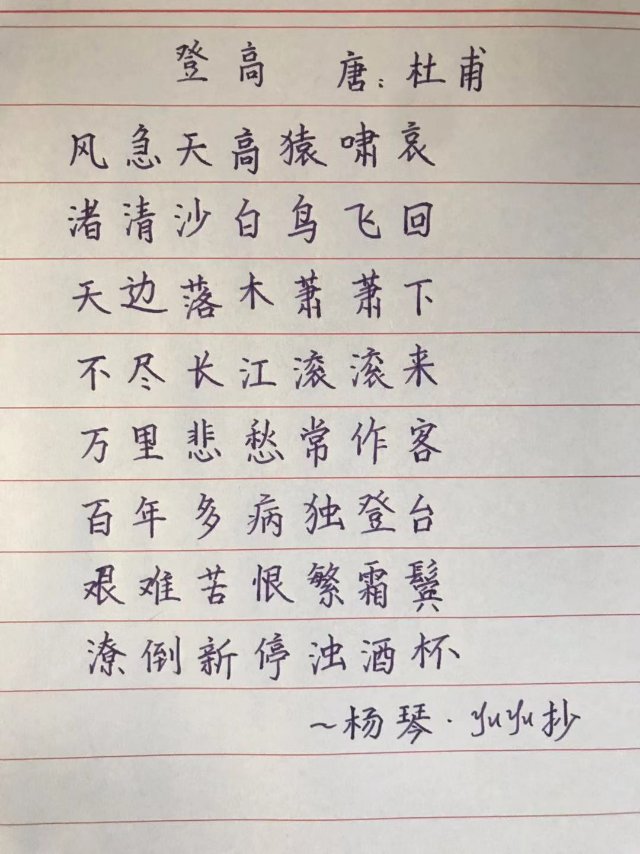 登高 唐:杜甫
风急天高猿啸哀
渚清沙白鸟飞回
天边落木萧萧下
不尽长江滚滚来
万里悲愁常作客
百年多病独登台
艰难苦恨繁霜鬓
潦倒新停浊酒杯
~杨琴·yuyu抄